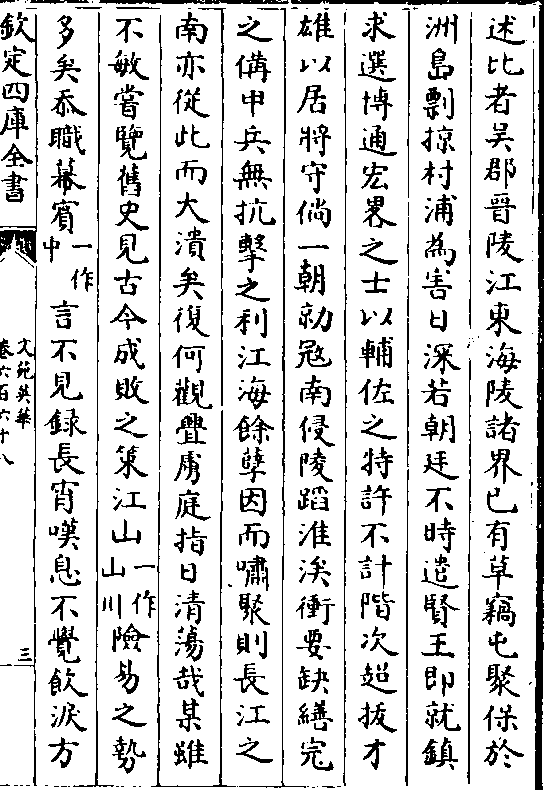 述比者吴郡晉陵江東海陵諸界已有草竊屯聚保於
洲島剽掠村浦為害日深若朝廷不時遣賢王即就鎮
求選博通宏畧之士以輔佐之特許不計階次超拔才
雄以居將守倘一朝勍冦南侵陵蹈淮涘衝要缺繕完
之備甲兵無抗擊之利江海餘孽因而嘯聚則長江之
南亦從此而大潰矣復何觀舋虜庭指日清蕩哉某雖
不敏嘗覽舊史見古今成敗之策江山一作山川險易之勢
多矣忝職幕賓一作中言不見録長宵嘆息不覺飲淚方
欽定四庫全書
文苑英華
卷六百六十八
三